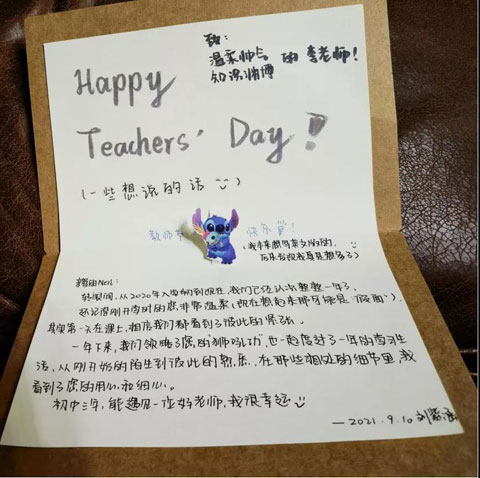 致:
温柔帅气 的 李老师!
知识渊博
Happy
Teachers' Day!
(一些想说的话
教师节 快乐!
(我本来想写英文版的,
后来发现我真是想多了)
Neil:
转眼间,从2020年入学到现在,我们已经认识整整一年了,
还记得刚开学时的您,非常温柔(现在想起来那可能是“假面”),
其实第一天在课上,相信我们都看到了彼此的紧张。
一年下来,我们领略了您的“狮吼功”,也一起度过了一年的学习生
活,从刚开始的陌生到彼此的熟悉,在那些相处的细节里,我
看到了您的用心和细心。
初中三年,能遇见一位好老师,我很幸运
—2021.9.10 刘